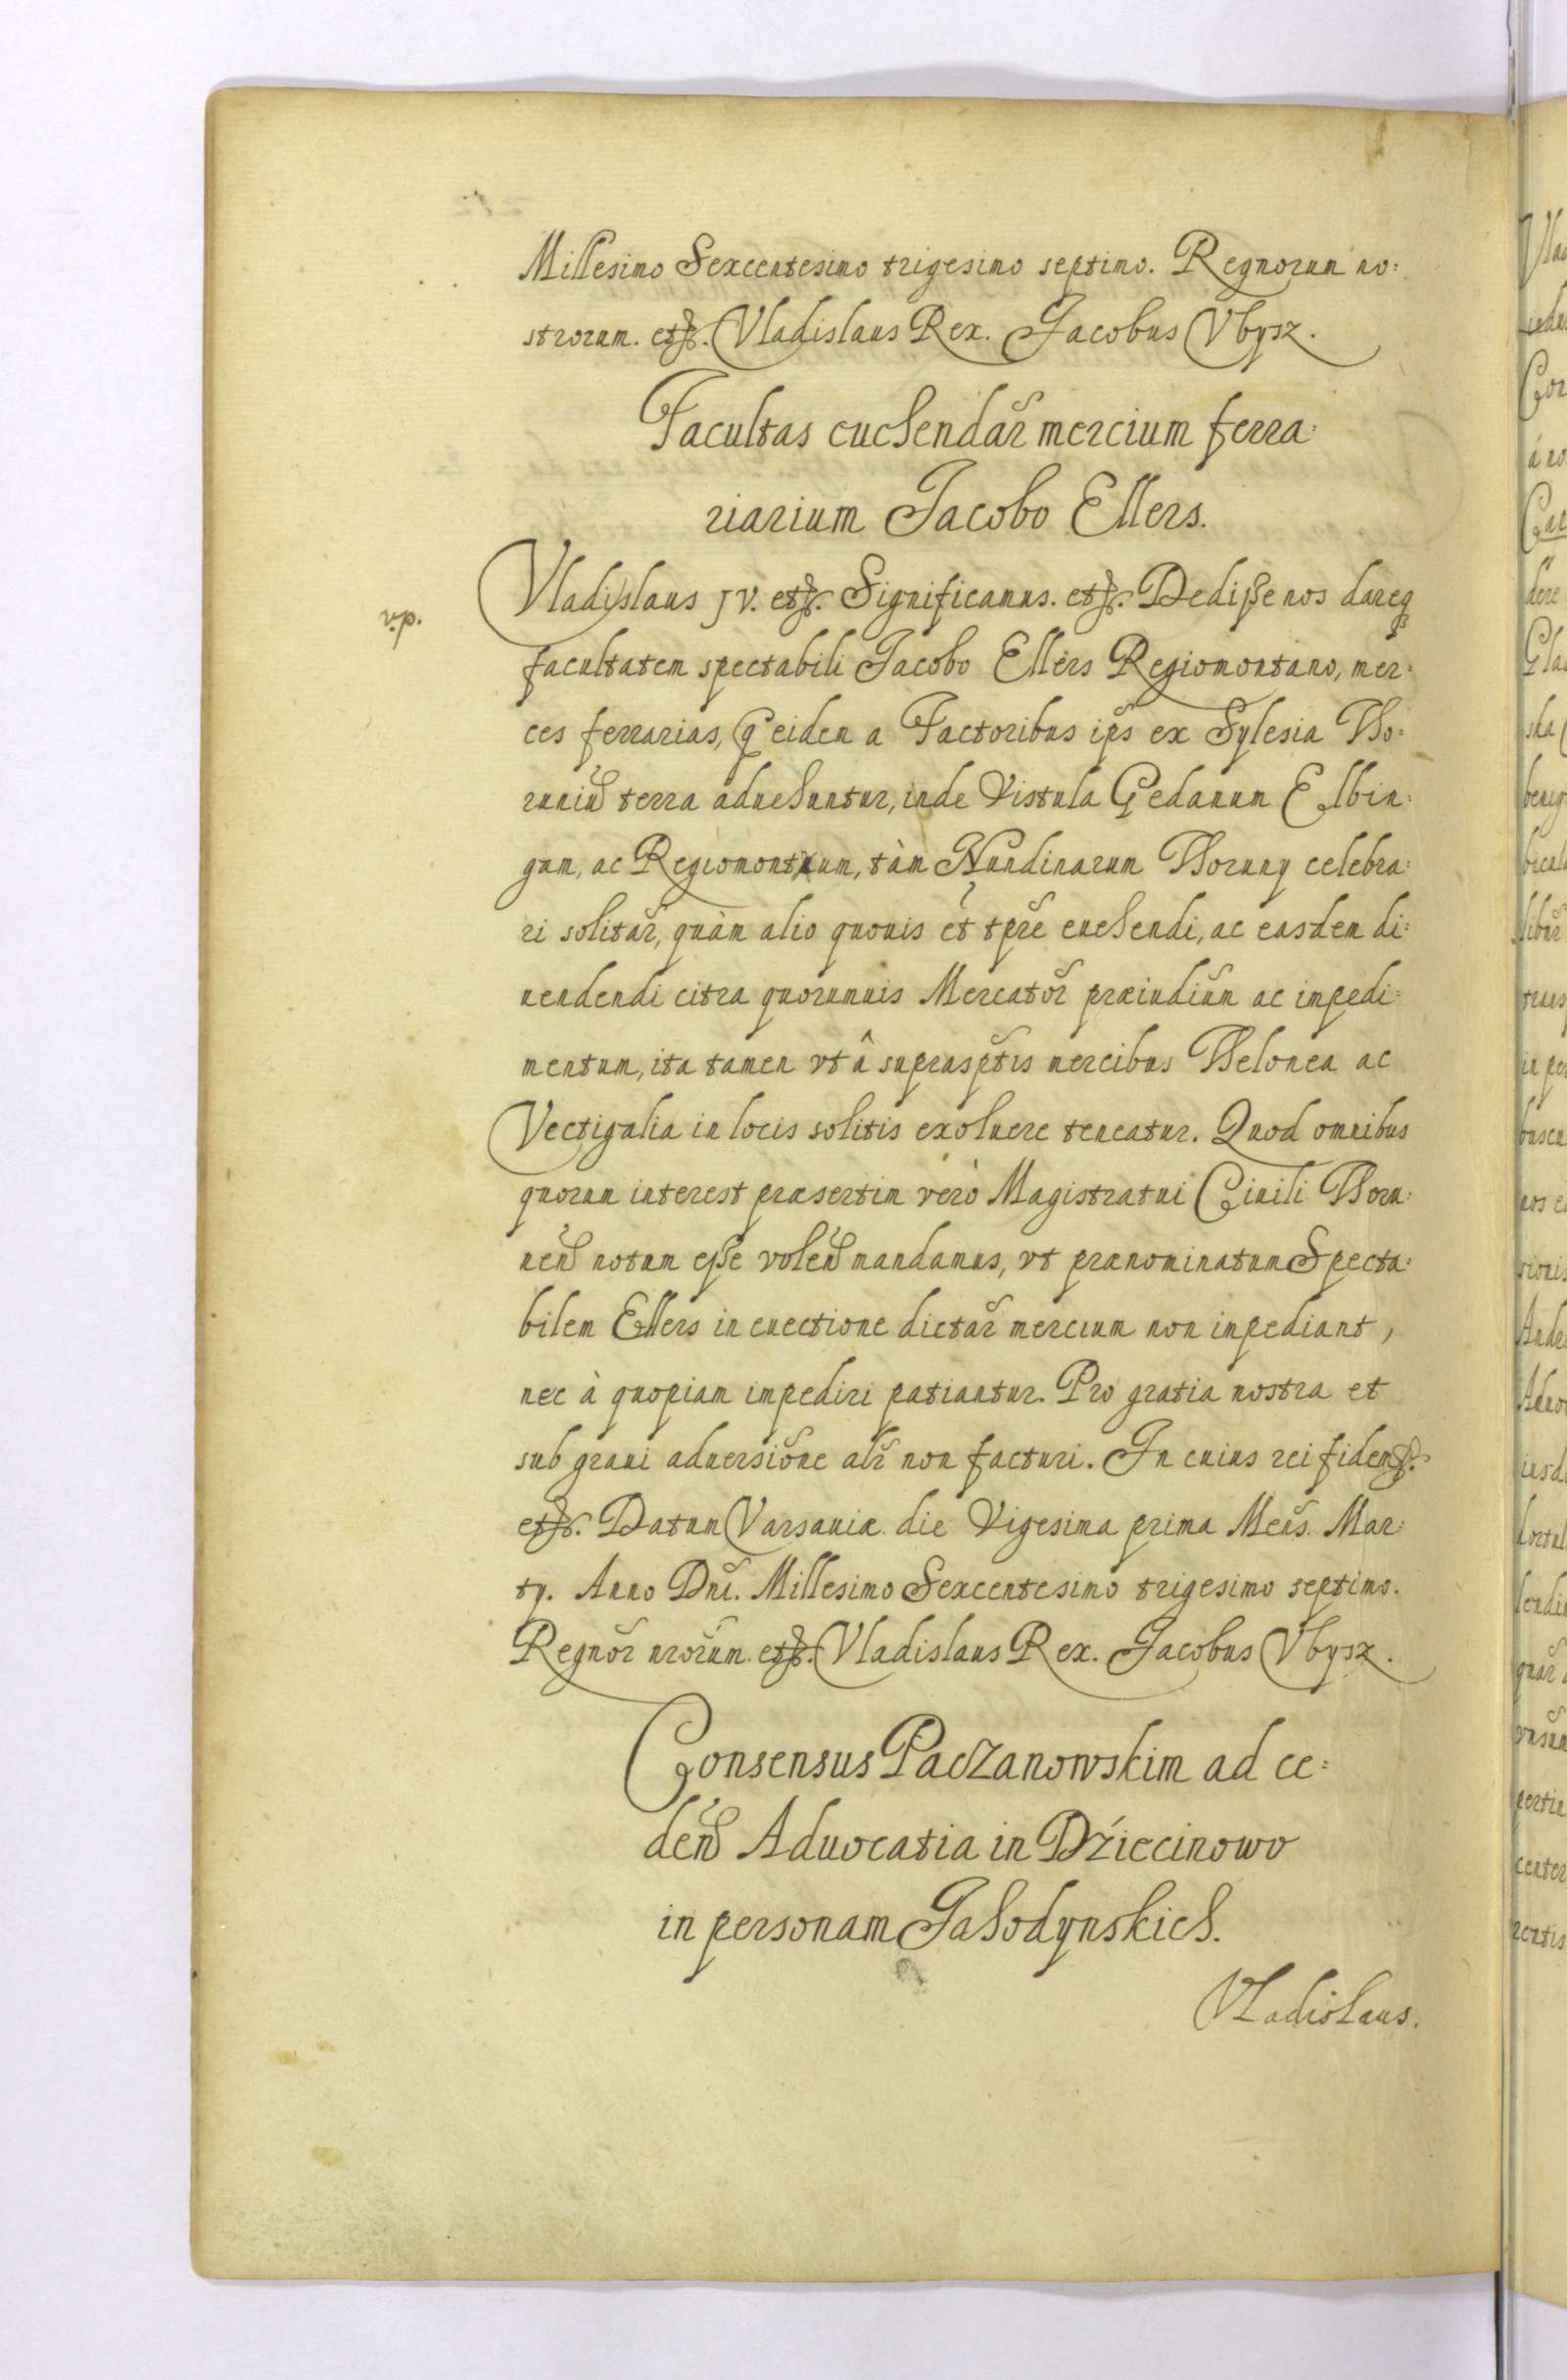 Millesimo Sexcentesimo trigesimo septimo. Regnorum no:
strorum. etc. Vladislaus Rex. Jacobus Vbysz.
Facultas euehendar̃ mercium ferra:
riarium Jacobo Ellers.
Vladyslaus JV. etc. Significamus. etc. Dedisse nos dareq
facultatem spectabili Jacobo Ellers Regiomontano, mer:
ces ferrarias, q eidem a Factoribus ip̃s ex Sylesia Tho:
runiu terra aduehuntur, inde Vistula Gedanum Elbin:
gam, ac Regiomontum, tàm Nundinarum Thoruny celebra:
ri solitar̃, quàm alio quouis et tp̃re euehendi, ac easdem di:
uendendi citra quorumuis Mercator̃ præiudiũm ac impedi:
mentum, ita tamen vt â suprasp̃tis mercibus Thelonea ac
Vectigalia in locis solitis exoluere teneatur. Quod omnibus
quorum interest præsertim verò Magistratui Ciuili Thoru:
neñ notum esse voleñ mandamus, vt prænominatum Specta:
bilem Ellers in euectione dictar̃ mercium non impediant,
nec à quopiam impediri patiantur. Pro gratia nostra et
sub graui aduersiõne alr̃ non facturi. In cuius rei fidem
etc. Datum Varsauiæ die Vigesima prima Meñs. Mar:
ty. Anno Dnĩ. Millesimo Sexcentesimo trigesimo septimo.
Regnor̃ nrõrum. etc. Vladislaus Rex. Jacobus Vbysz.
Consensus Paczanowskim ad ce:
deñ Aduocatia in Dźiecinowo
in personam Jahodynskich.
Vladislaus.